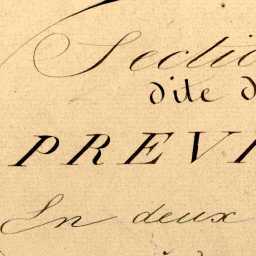 Sectio
dite d
PREVI
En deux